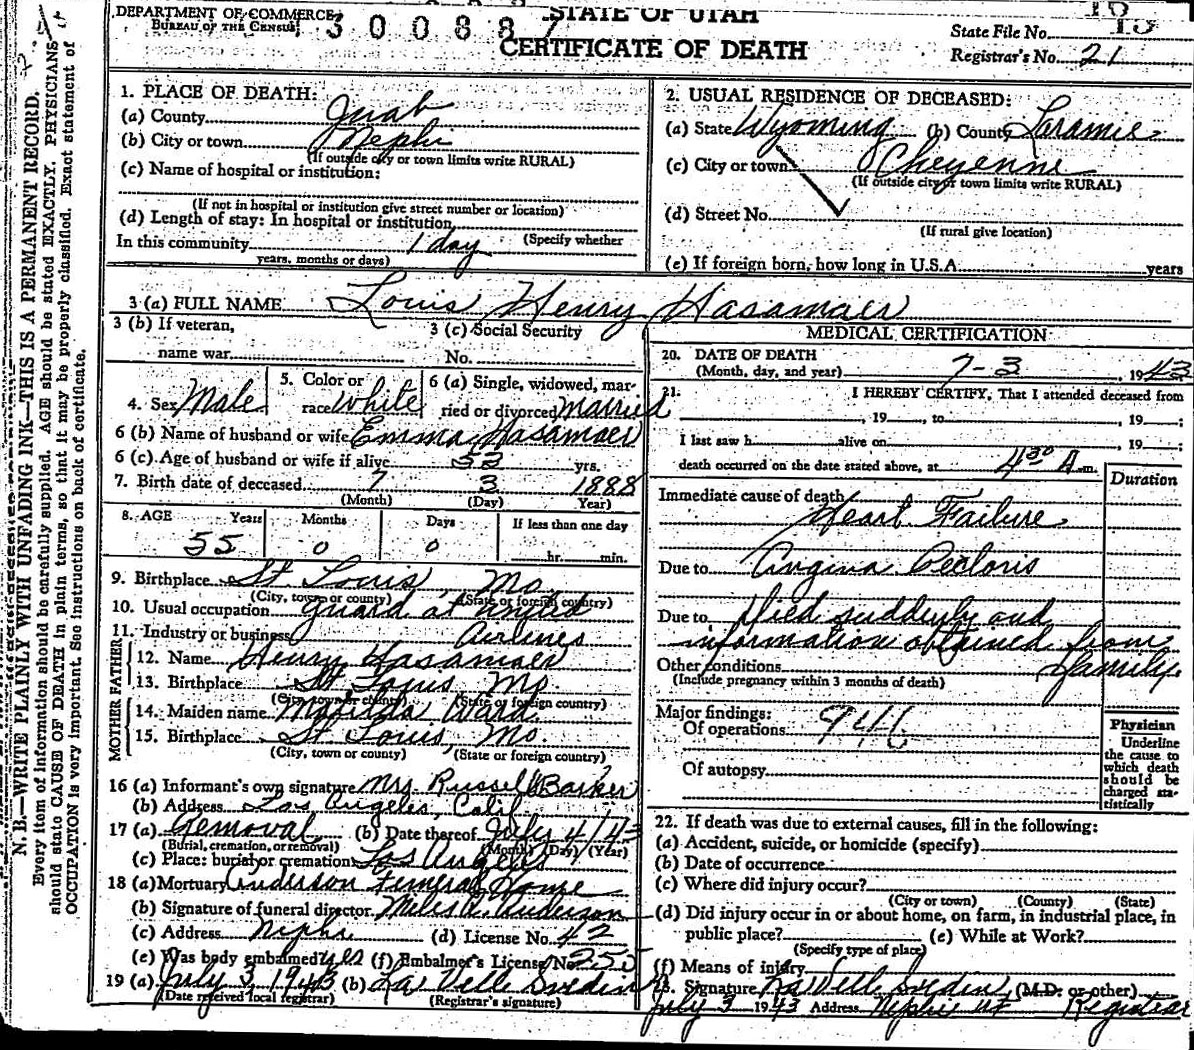 DEPARTMENT OF COMMERCE
BUREAU OF THE CENSUS
300887
STATE OF UTAH
CERTIFICATE OF DEATH
State File No. 13
Registrar's No. 21
N. B.—WRITE PLAINLY WITH UNFADING INK—THIS IS A PERMANENT RECORD.
Every item of information should be carefully supplied. AGE should be stated EXACTLY. PHYSICIANS
should state CAUSE OF DEATH in plain terms, so that it may be properly classified. Exact statement of
OCCUPATION is very important. See instructions on back of certificate.
1. PLACE OF DEATH:
(a) County Juab
(b) City or town Nephi
(If outside city or town limits write RURAL)
(c) Name of hospital or institution:
(If not in hospital or institution give street number or location)
(d) Length of stay: In hospital or institution
In this community 1 day (Specify whether
years, months or days)
2. USUAL RESIDENCE OF DECEASED:
(a) State Wyoming (b) County Laramie
(c) City or town Cheyenne
(If outside city or town limits write RURAL)
(d) Street No.
(If rural give location)
(e) If foreign born, how long in U.S.A. years
3 (a) FULL NAME Louis Henry Hasamaer
3 (b) If veteran,
name war
3 (c) Social Security
No.
4. Sex Male
5. Color or
race White
6 (a) Single, widowed, mar-
ried or divorced Married
6 (b) Name of husband or wife Emma Hasamaer
6 (c) Age of husband or wife if alive 53 yrs.
7. Birth date of deceased 7 3 1888
(Month) (Day) Year)
8. AGE Years Months Days If less than one day
55 0 0 hr. min.
9. Birthplace St Louis, Mo.
(City, town or county) (State or foreign country)
10. Usual occupation guard at united
11. Industry or business Airlines
FATHER
12. Name Henry Hasamaer
13. Birthplace St Louis Mo.
(City, town or county) (State or foreign country)
MOTHER
14. Maiden name Matilda Ward
15. Birthplace St Louis, Mo.
(City, town or county) (State or foreign country)
16 (a) Informant's own signature Mrs. Russell Barker
(b) Address Los Angeles, Calif
17 (a) Removal (b) Date thereof July 4/43
(Burial, cremation, or removal) (Month) (Day) (Year)
(c) Place: burial or cremation Los Angeles
18 (a) Mortuary Anderson Funeral Home
(b) Signature of funeral director Miles R. Anderson
(c) Address Nephi (d) License No. 42
(e) Was body embalmed yes (f) Embalmer's License No. 255
19 (a) July 3, 1943 (b) La Velle Swedin
(Date received local registrar) (Registrar's signature)
MEDICAL CERTIFICATION
20. DATE OF DEATH
(Month, day, and year) 7-3, 1943
21. I HEREBY CERTIFY, That I attended deceased from
, 19 , to , 19 ;
I last saw h alive on , 19 ;
death occurred on the date stated above, at 4 30 A m.
Duration
Immediate cause of death
Heart Failure
Due to Angina Pectoris
Due to Died suddenly and
information obtained from
family.
Other conditions
(Include pregnancy within 3 months of death)
Major findings:
Of operations
Of autopsy
Physician
Underline
the cause to
which death
should be
charged sta-
tistically
22. If death was due to external causes, fill in the following:
(a) Accident, suicide, or homicide (specify)
(b) Date of occurrence
(c) Where did injury occur?
(City or town) (County) (State)
(d) Did injury occur in or about home, on farm, in industrial place, in
public place? (e) While at Work?
(Specify type of place)
(f) Means of injury
23. Signature La Velle Swedin (M.D. or other)
July 3 1943 Address Nephi Ut Registrar